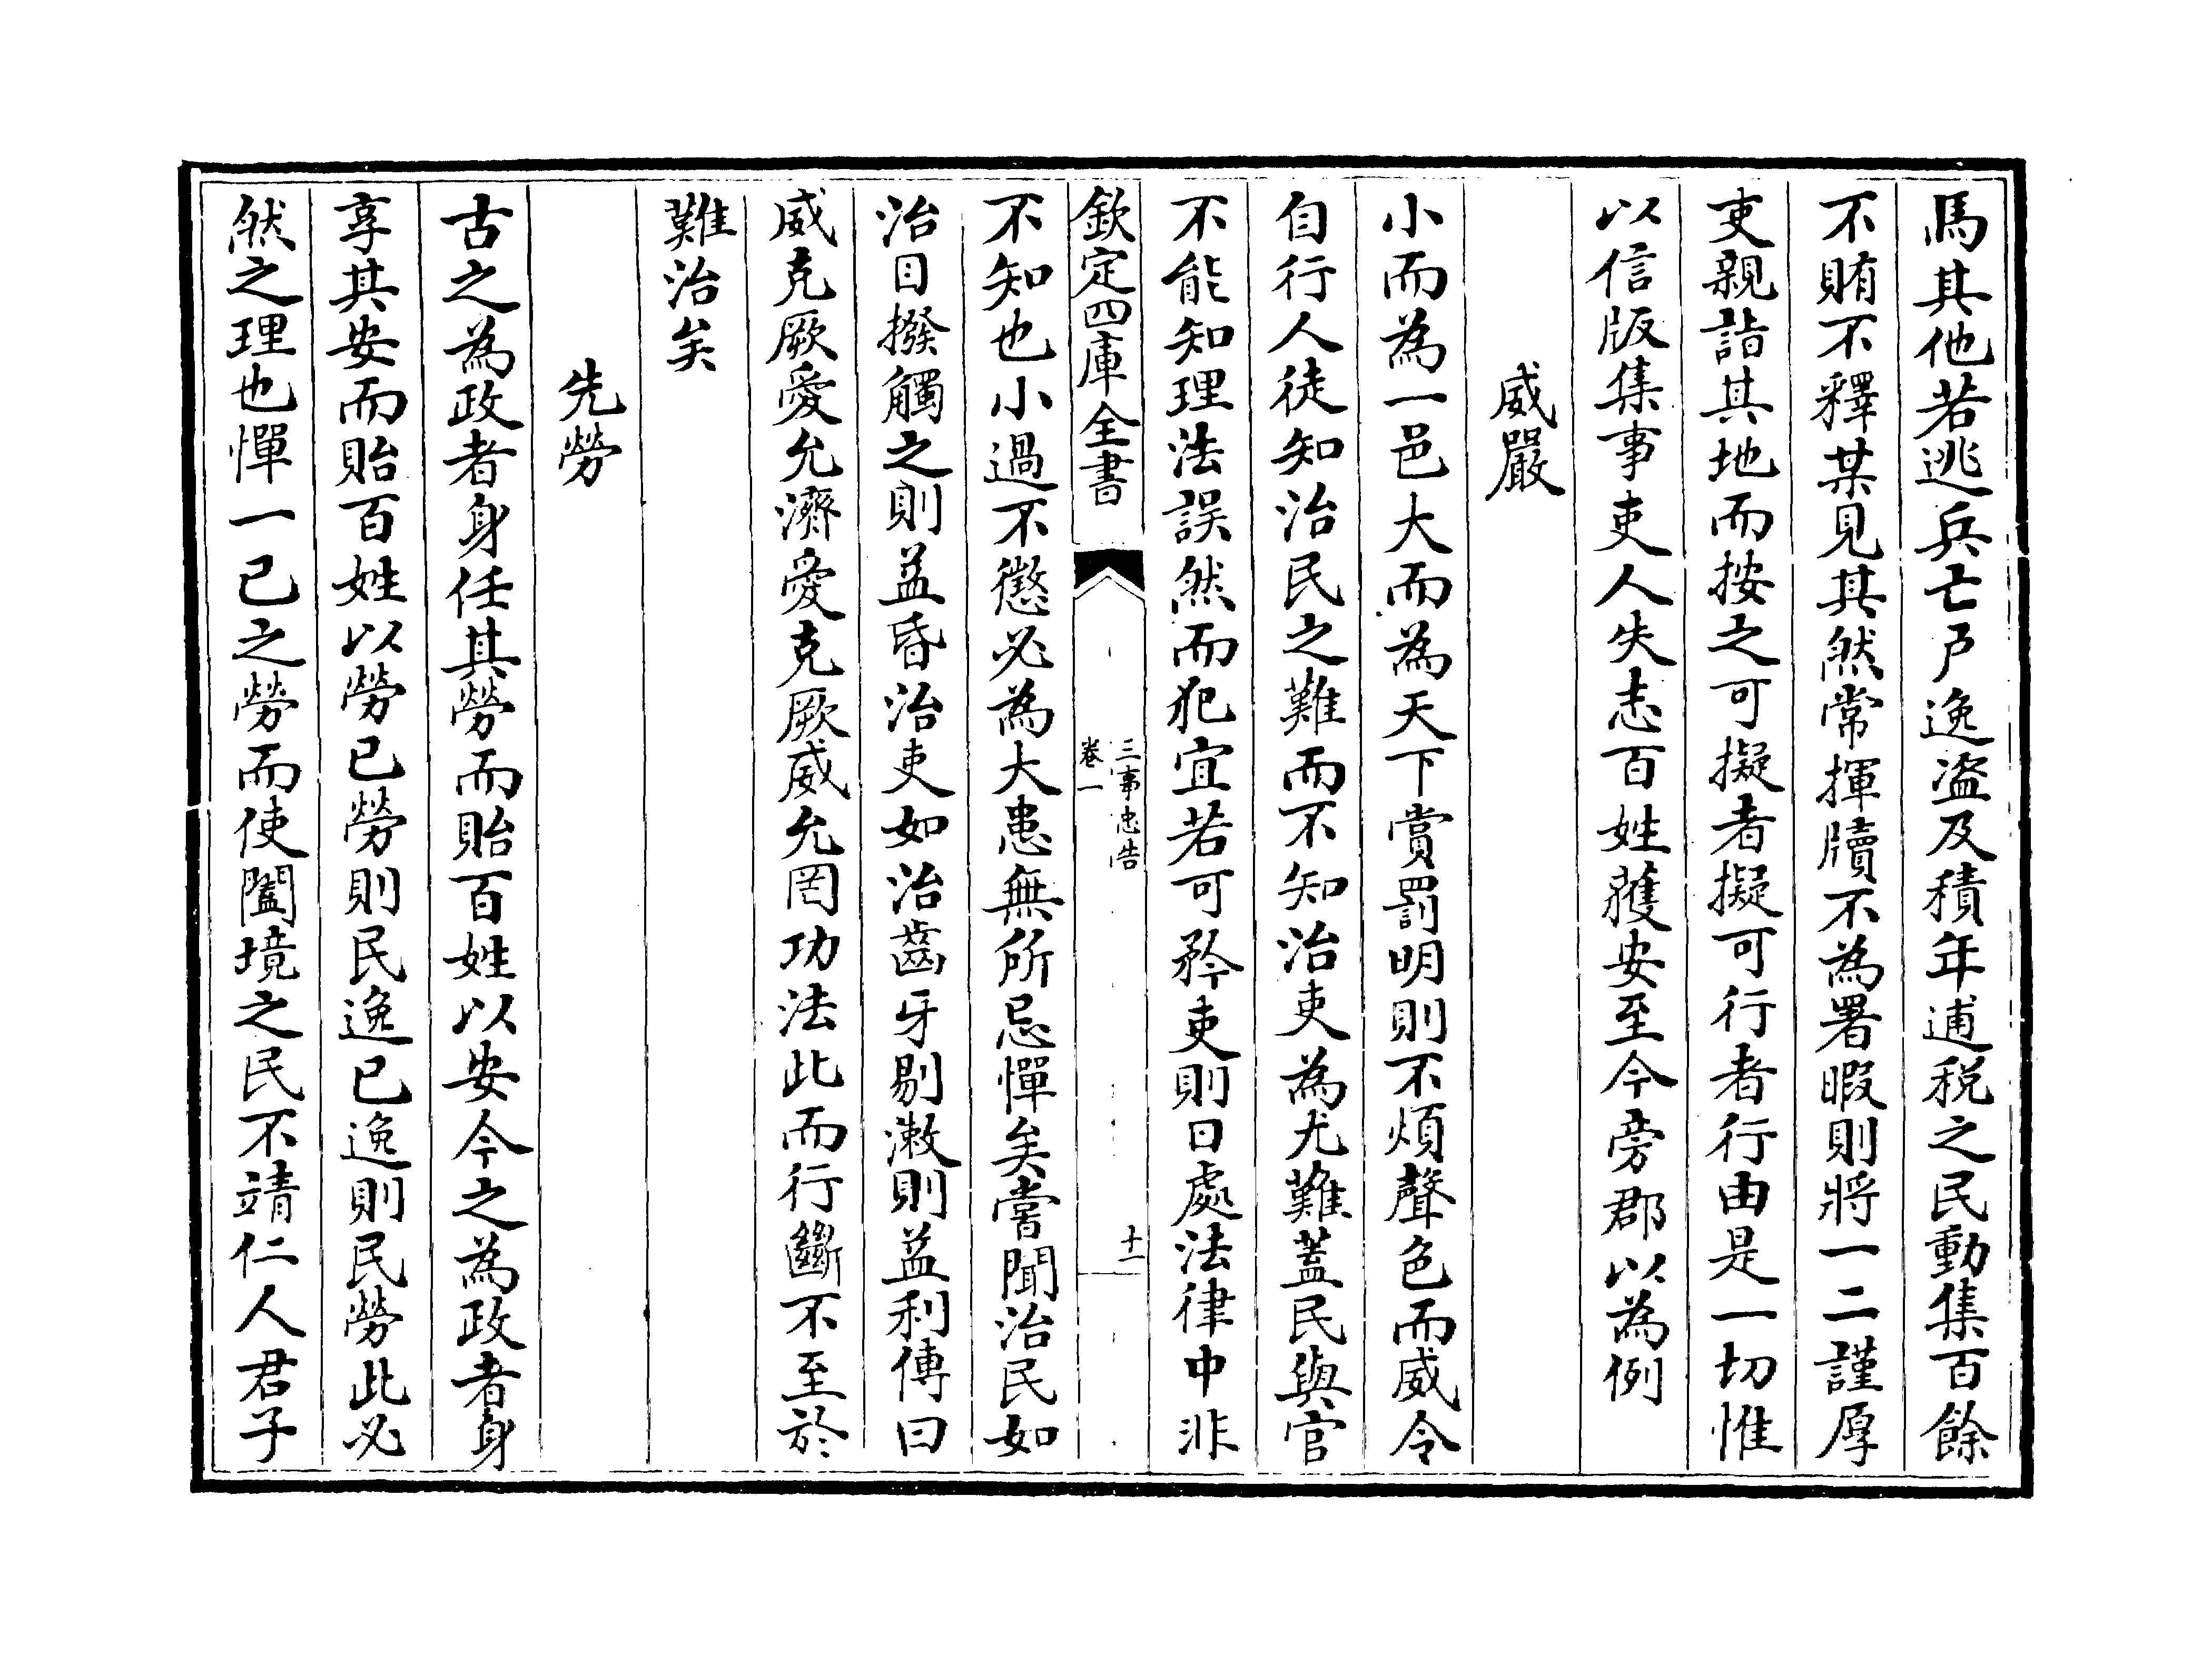 馬其他若逃兵亡戶逸盜及積年逋税之民動集百餘
不賄不釋某見其然常揮牘不為署暇則將一二謹厚
吏親詣其地而按之可擬者擬可行者行由是一切惟
以信版集事吏人失志百姓獲安至今旁郡以為例
威嚴
小而為一邑大而為天下賞罰明則不煩聲色而威令
自行人徒知治民之難而不知治吏為尤難蓋民與官
不能知理法誤然而犯宜若可矜吏則日處法律中非
欽定四庫全書
三事忠告
卷一
十一
不知也小過不懲必為大患無所忌憚矣嘗聞治民如
治目撥觸之則益昏治吏如治齒牙剔漱則益利傳曰
威克厥愛允濟愛克厥威允罔功法此而行斷不至於
難治矣
先勞
古之為政者身任其勞而貽百姓以安今之為政者身
享其安而貽百姓以勞已勞則民逸已逸則民勞此必
然之理也憚一已之勞而使闔境之民不靖仁人君子